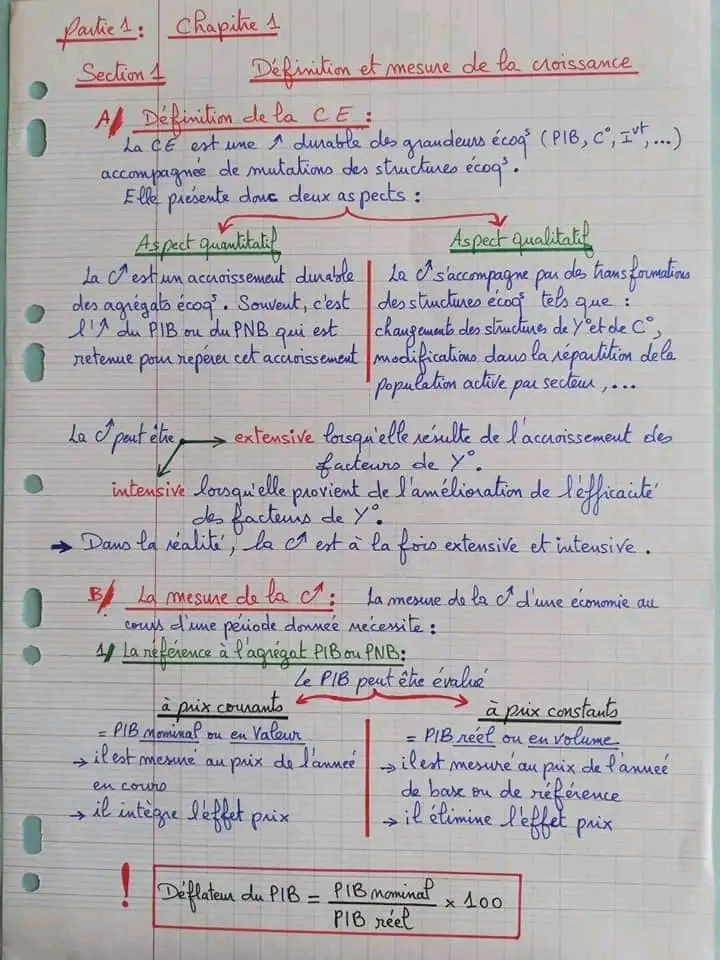 Partie 1 : Chapitre 1
Section 1 Définition et mesure de la croissance
A/ Définition de la C E :
La C E est une ↗ durable des grandeurs écoqˢ (PIB, C°, Iᵛᵗ, ...)
accompagnée de mutations des structures écoqˢ.
Elle présente donc deux aspects :
Aspect quantitatif
La C↗ est un accroissement durable
des agrégats écoqˢ. Souvent, c'est
l'↗ du PIB ou du PNB qui est
retenue pour repérer cet accroissement
Aspect qualitatif
La C↗ s'accompagne par des transformations
des structures écoqˢ tels que :
changements des structures de Y° et de C°,
modifications dans la répartition de la
population active par secteur, ...
La C↗ peut être → extensive lorsqu'elle résulte de l'accroissement des
facteurs de Y°.
intensive lorsqu'elle provient de l'amélioration de l'éfficacité
des facteurs de Y°.
→ Dans la réalité, la C↗ est à la fois extensive et intensive.
B/ La mesure de la C↗ : La mesure de la C↗ d'une économie au
cours d'une période donnée nécessite :
1/ La référence à l'agrégat PIB ou PNB :
Le PIB peut être évalué
à prix courants
= PIB nominal ou en Valeur
→ il est mesuré au prix de l'année
en cours
→ il intègre l'éffet prix
à prix constants
= PIB réel ou en volume
→ il est mesuré au prix de l'année
de base ou de référence
→ il élimine l'éffet prix
! Déflateur du PIB = PIB nominal / PIB réel × 100